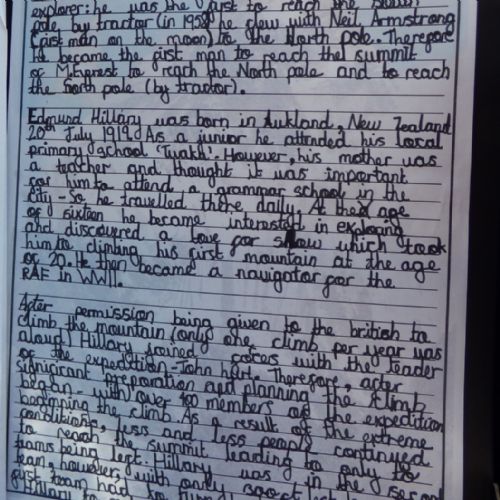 explorer: he was the first to reach the South
pole by tractor (in 1958 he flew with Neil Armstrong
(first man on the moon) to the North pole. Therefore
he became the first man to reach the summit
of M.Everest to reach the North pole and to reach
the South pole (by tractor).
Edmund Hillary was born in Aukland, New Zealand
20th July 1919. As a junior he attended his local
primary school 'Tuakh'. However, his mother was
a teacher and thought it was important
for him to attend a grammar school in the
city - so he travelled there daily. At the age
of sixteen he became interested in exploring
and discovered a love for snow which took
him to climbing his first mountain at the age
of 20. He then became a navigator for the
RAF in WWII.
After permission being given to the british to
climb the mountain (only one climb per year was
aloud) Hillary joined forces with the leader
of the expedition - John hunt. Therefore, after
significant preparation and planning the climb
began with over 400 members of the expedition
beginning the climb. As result of the extreme
conditions, less and less people continued
to reach the summit leading to only to
teams being left. Hillary was in the second
team, however, with only 300ft left
first team had to turn
Hillary to